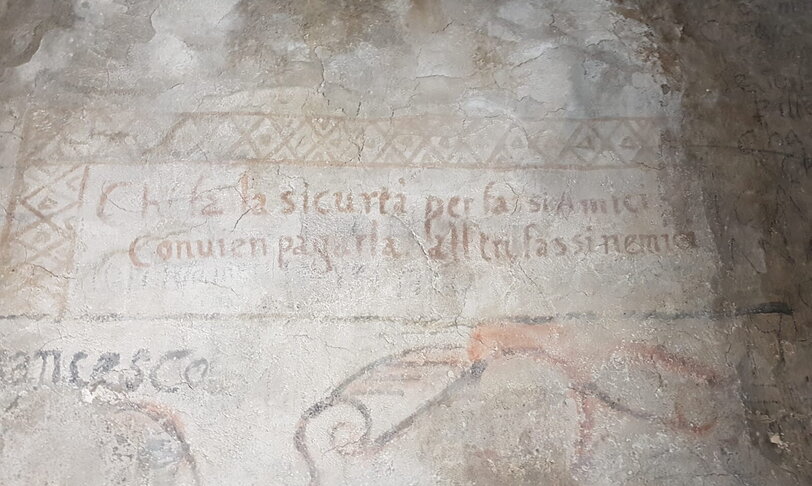 Chi fa la sicurtà per farsi Amici
Convien pagarla. all tri fassi nemici
ancesco